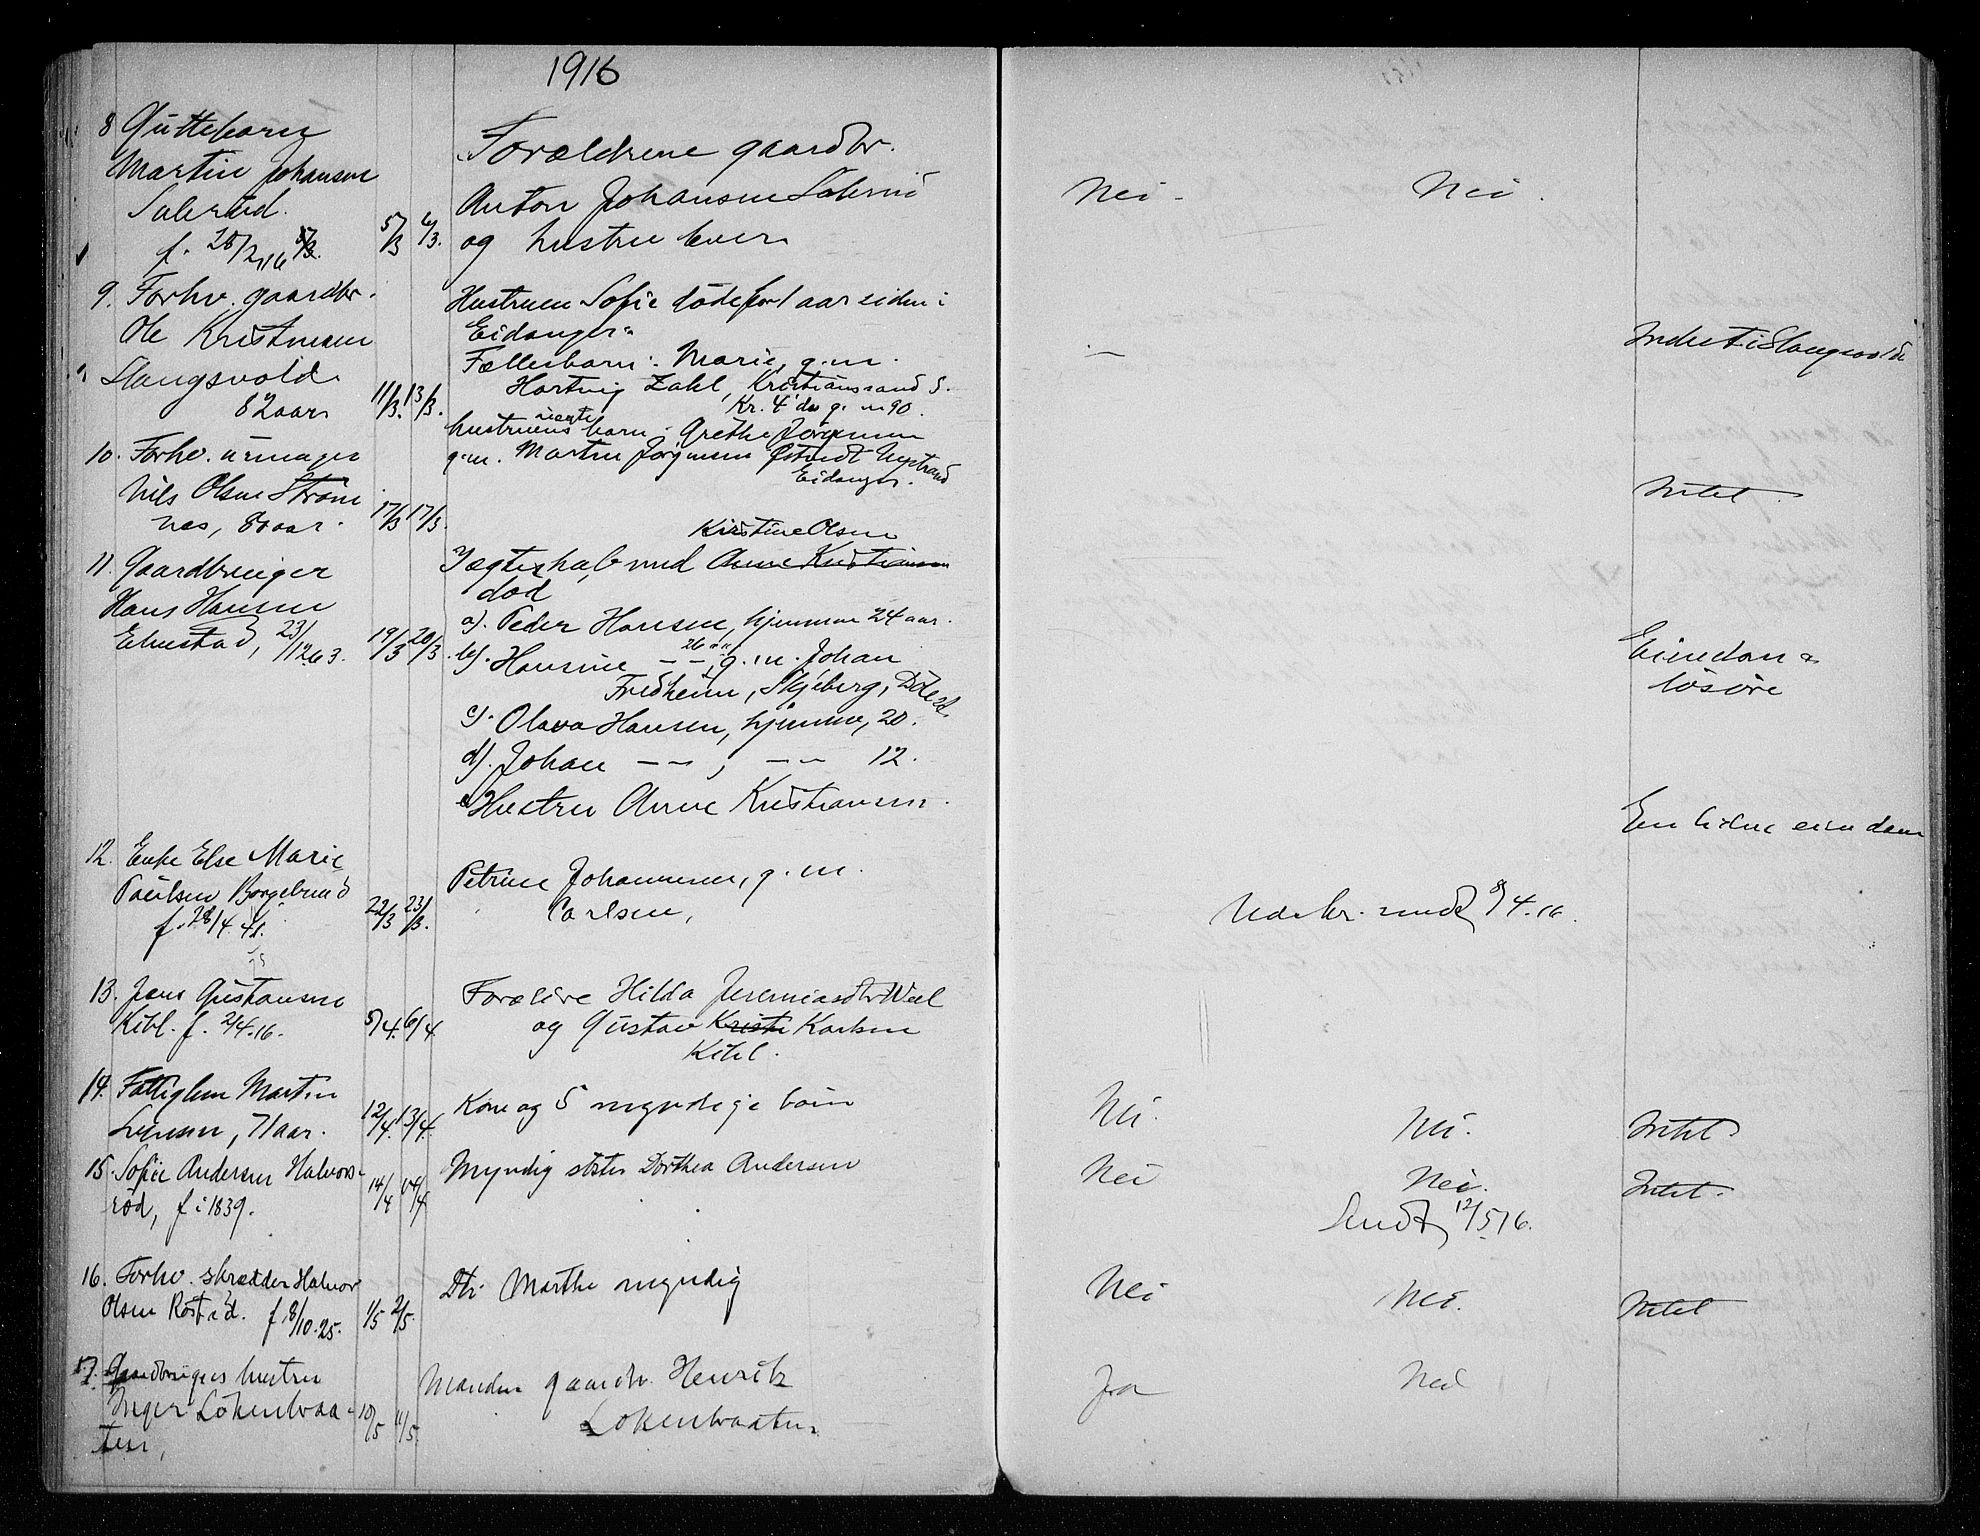 1916
8 Guttebarn
Martin Johansen
f. 28/2 16 5/3
5/3 6/3.
Forældrene gaardbr.
Anton Johansen
og hustru lever
Nei - Nei.
9. Forhv. gaardbr.
Ole Kristensen
Slangsvold
82 aar
11/3. 13/3.
Hustruen Sofie døde for 1 aar siden i
Eidanger.
Fællesbarn: Marie, g.m.
Hartvig Zahl, Kristianssand S.
Kr. 4
hustruens barn - Grethe Jørgensen
g.m. Martin Jørgensen Østvedt
Eidanger.
10. Forhv.
Nils Olsen Strøm
nes, 80 aar.
17/3 17/3.
Intet.
11. Gaardbruger
Hans Hansen
23/12 63.
19/3 20/3.
Kristine Olsen
Ægteskab med Anne Kristiansen
død
a). Peder Hansen, hjemme 24 aar.
26 "
b). Hansine - - , g.m. Johan
Fredheim, Skjeberg,
c). Olava Hansen, hjemme, 20.
d). Johan - - , - - 12.
Hustru Anne Kristiansen.
Eiendom &
løsøre
12. Enke Else Marie
Paulsen Borgebund
f. 28/4. 41.
22/3 23/3.
Petrine Johannesen, g.m.
Carlsen,
sendt 8/4.16.
En liden eiendom
13. Jens Gustavsen
Kihl. f. 2/4.16.
5/4. 6/4
Forældre Hilda Jeremiasdtr
og Gustav Kristi Karlsen
Kihl.
14. Fattiglem Martin
71 aar.
12/4. 13/4.
Kone og 5 myndige børn
Nei. Nei. Intet
15. Sofie Andersen Halvors-
rød, f i 1839.
14/4 14/4
Myndig søster Dorthea Andersen
Nei Nei. Intet.
Sendt 12/5 16.
16. Forhv. skrædder Halvor
Olsen f 8/10.25.
1/5 2/5.
Dtr. Marthe myndig
Nei Nei. Intet
17. Gaardbrugers hustru
Inger Løkenbraa-
ten,
10/5 11/5.
Manden gaardbr. Henrik
Løkenbraaten.
Ja Nei